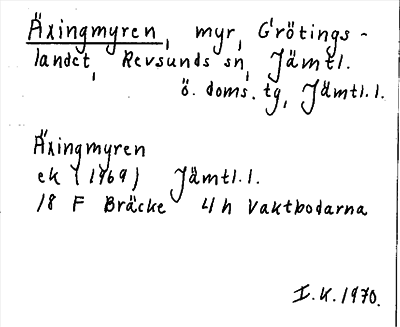 Äxingmyren, myr, Grötings-
landet, Revsunds sn, Jämtl.
ö. doms. tg, Jämtl.l.
Äxingmyren
ek (1969) Jämtl.l.
18 F Bräcke 4h Vaktbodarna
I.K.1970.